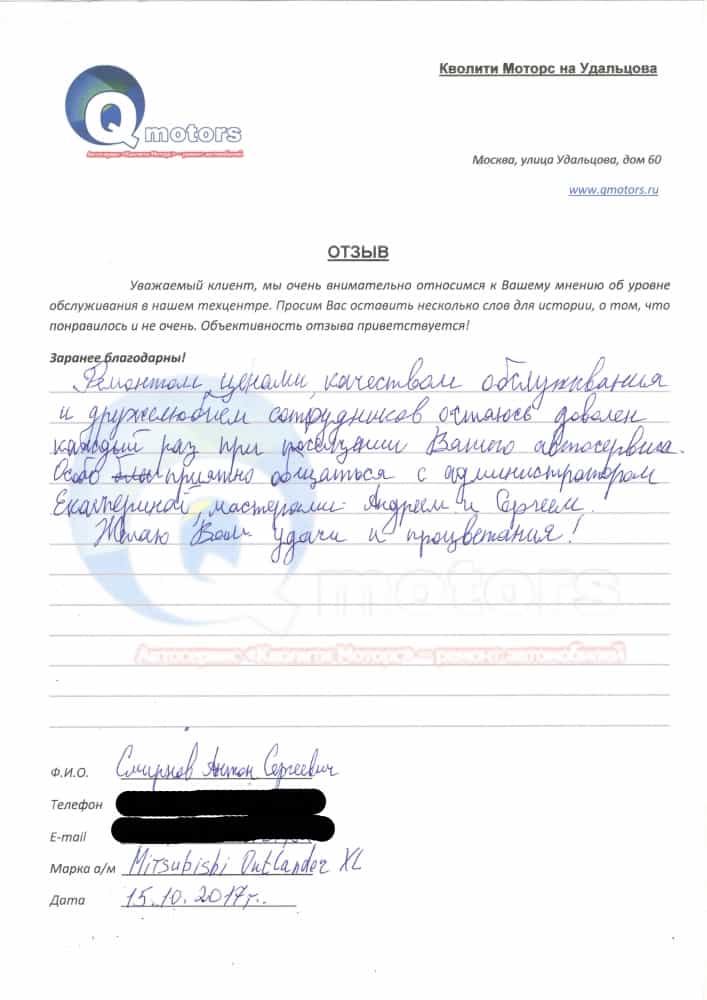 Кволити Моторс на Удальцова
Q motors
Автосервис «Кволити Моторс» — ремонт автомобилей
Москва, улица Удальцова, дом 60
www.qmotors.ru
ОТЗЫВ
Уважаемый клиент, мы очень внимательно относимся к Вашему мнению об уровне
обслуживания в нашем техцентре. Просим Вас оставить несколько слов для истории, о том, что
понравилось и не очень. Объективность отзыва приветствуется!
Заранее благодарны!
Ремонтом, ценами, качеством обслуживания
и дружелюбием сотрудников остаюсь доволен
каждый раз при посещении Вашего автосервиса.
Особо приятно общаться с администратором
Екатериной, мастерами: Андреем и Сергеем.
Желаю Вам удачи и процветания!
Q motors
Автосервис «Кволити Моторс» — ремонт автомобилей
Ф.И.О. Смирнов Антон Сергеевич
Телефон
E-mail
Марка а/м Mitsubishi Outlander XL
Дата 15.10.2017г.